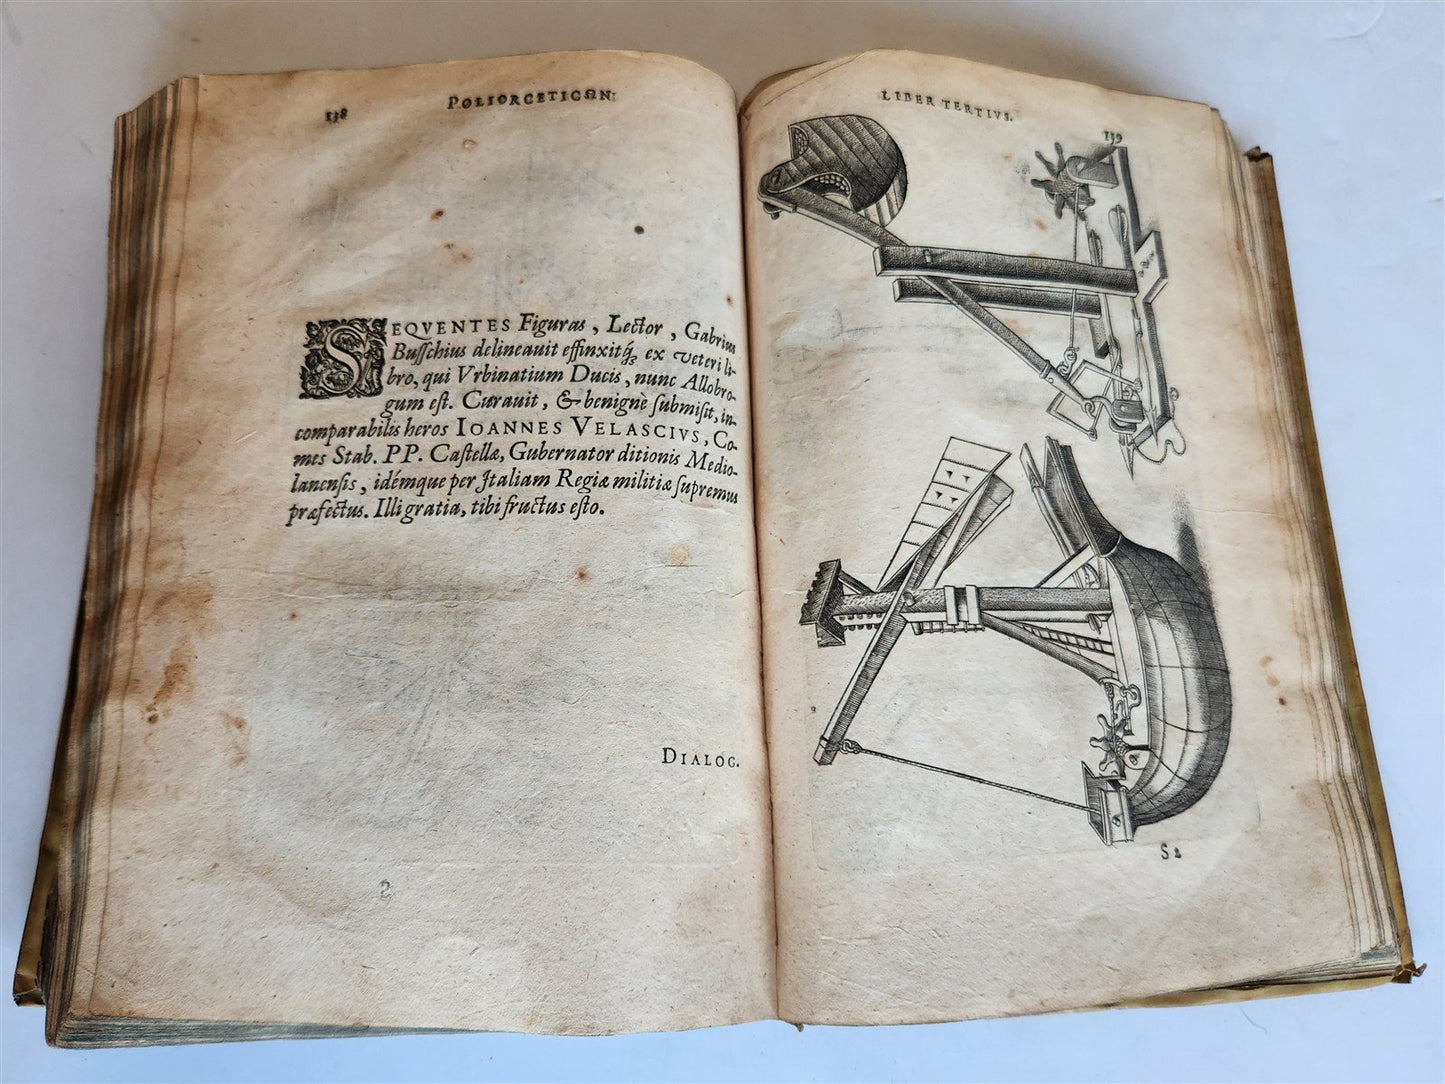 138
POLIORCETICΩN:
SEQVENTES Figuras, Lector, Gabrius
Busschius delineauit effinxitq́; ex veteri li-
bro, qui Vrbinatium Ducis, nunc Allobro-
gum est. Curauit, & benignè submisit, in-
comparabilis heros IOANNES VELASCIVS, Co-
mes Stab. PP. Castellæ, Gubernator ditionis Medio-
lanensis, idémque per Italiam Regiæ militiæ supremus
præfectus. Illi gratia, tibi fructus esto.
DIALOG.
LIBER TERTIVS.
139
S 2